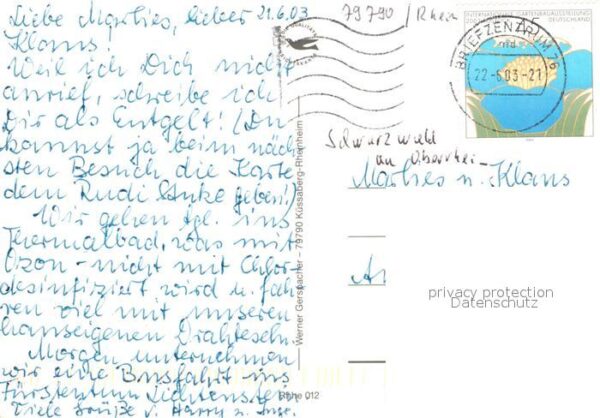 Liebe Marlies, lieber 21.6.03
Klaus!
Weil ich Dich nicht
anrief, schreibe ich
Dir als Entgelt! (Du
kannst ja beim näch
sten Besuch die Karte
dem Rudi geben!)
Wir gehen tgl. ins
Thermalbad, was mit
Ozon - nicht mit Chlor
desinfiziert wird u. fah
ren viel mit unseren
hauseigenen Drahteseln.
Morgen unternehmen
wir eine Busfahrt ins
Fürstentum Lichtenstein
Viele Grüße v. Harry u. Inge.
79790 / Rhein
INTERNATIONALE GARTENBAUAUSSTELLUNG
DEUTSCHLAND
BRIEFZENTRUM 76
22-6.03-21
Schwarzwald
am Oberrhein
Marlies u. Klaus
Werner Gerspacher – 79790 Küssaberg-Rheinheim
012
privacy protection
Datenschutz